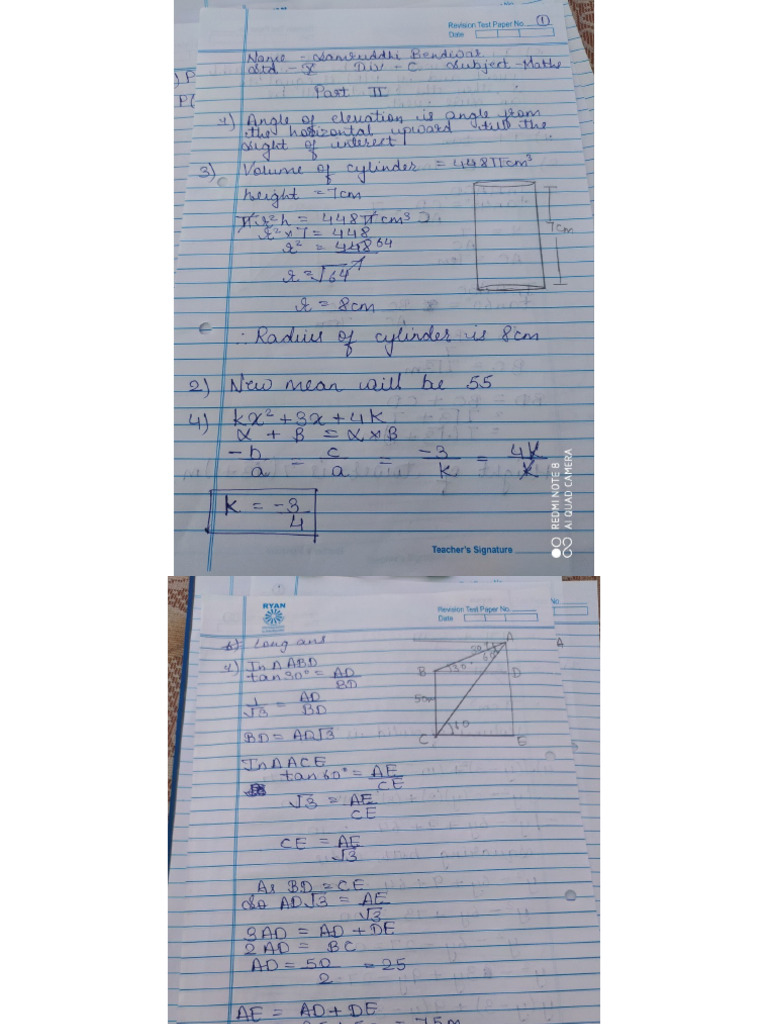 Revision Test Paper No. 1
Date
Name - Samruddhi Bendwar
Std - X Div - C Subject - Maths
Part II
1) Angle of elevation is angle from
the horizontal upward till the
sight of interest
3) Volume of cylinder = 448πcm³
height = 7cm
πr²h = 448πcm³
r² x 7 = 448
r² = 448 64
r = √64
r = 8cm
7cm
∴ Radius of cylinder is 8cm
2) New mean will be 55
4) kx² + 3x + 4k
α + β = α x β
-b/a = c/a = -3/k = 4k/k
k = -3/4
REDMI NOTE 8
AI QUAD CAMERA
Teacher's Signature
RYAN
Revision Test Paper No.
Date
No.
Long ans
1) In Δ ABD
tan30° = AD/BD
1/√3 = AD/BD
BD = AD√3
In Δ ACE
tan60° = AE/CE
√3 = AE/CE
CE = AE/√3
As BD = CE
So AD√3 = AE/√3
3AD = AD + DE
2AD = BC
AD = 50/2 = 25
AE = AD + DE
= 75m
A
B 30° D
50m
C 60 E